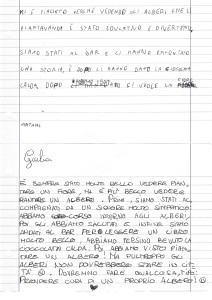 MI È PIACIUTO PERCHÉ VEDENDO GLI ALBERI CHE LI
PIANTAVANO È STATO EDUCATIVO E DIVERTENTE
SIAMO STATI AL BAR E CI HANNO RACCONTATO
UNA STORIA, E POI CI HANNO DATO LA CIOCCOLATA
CALDA, DOPO
Giulia
È SEMPRE STATO MOLTO BELLO VEDERE PIAN-
TARE UN FIORE, MA È PIÙ BELLO VEDERE
PIANTARE UN ALBERO. PRIMA, SIAMO STATI AC-
COMPAGNATI DA UN SIGNORE MOLTO SIMPATICO
ABBIAMO CORSO INTORNO AGLI ALBERI,
POI GLI ABBIAMO SALUTATI E INFINE SIAMO
ANDATI AL BAR PER LEGGERE UN LIBRO
MOLTO BELLO, ABBIAMO PERSINO BEVUTO LA
CIOCCOLATA CALDA. POI ABBIAMO VISTO PIAN-
TARE UN ALBERO! MA PURTROPPO GLI
ALBERI NON DOVREBBERO STARE IN CIT-
TÀ. DOVREMMO FARE QUALCOSA, TIPO:
PRENDERE CURA DI UN PROPRIO ALBERO!